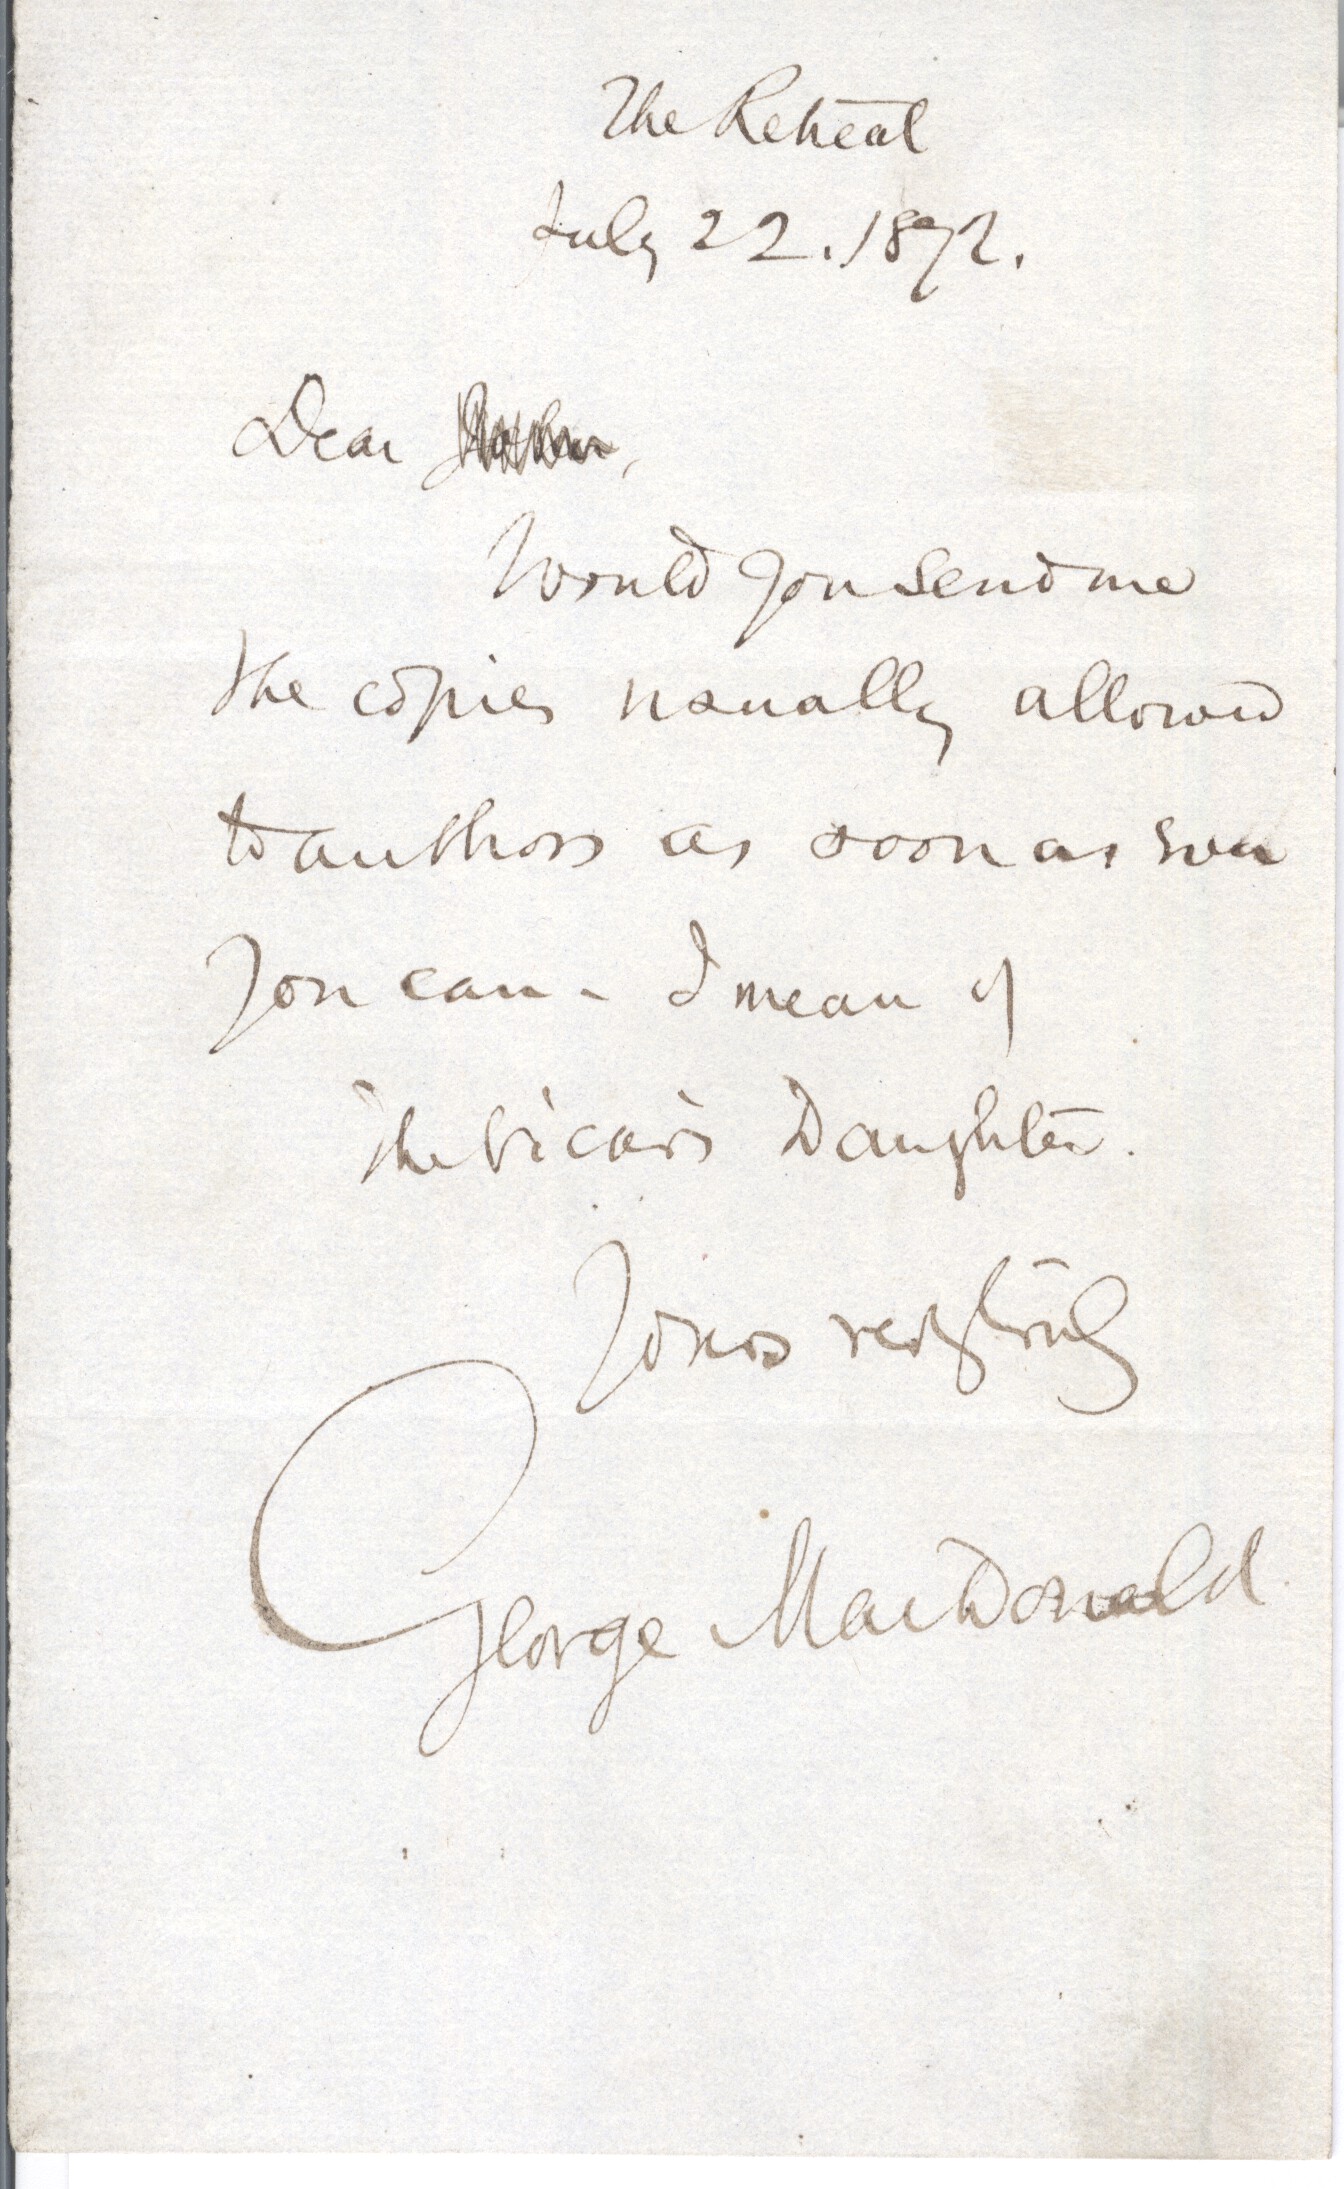 The Retreat
July 22. 1872.
Dear ,
Would you send me
the copies usually allowed
to authors as soon as
you can - I mean of
The Vicar's Daughter.
Yours very truly
George MacDonald